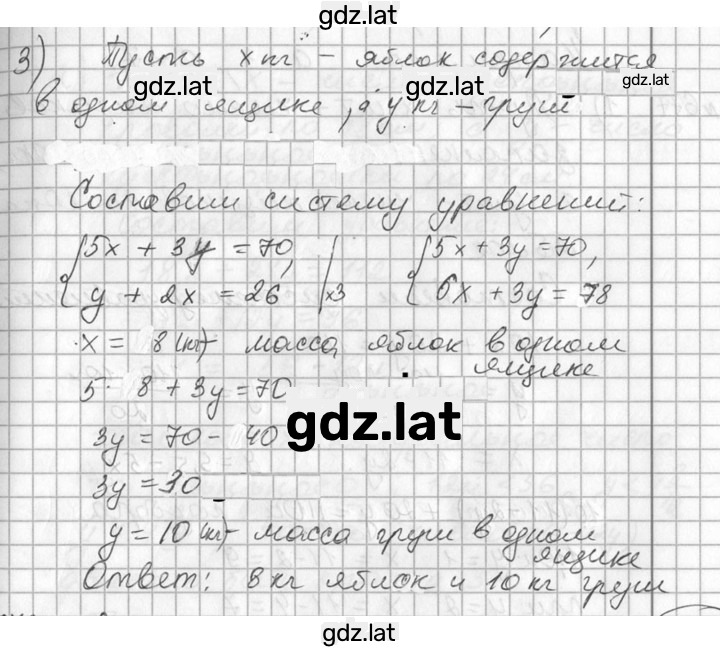 gdz.lat
3) Пусть x кг – яблок содержится
gdz.lat gdz.lat gdz.lat
в одном ящике, а y кг – груш
Составим систему уравнений:
{5x + 3y = 70, {5x + 3y = 70,
{y + 2x = 26 |x3 {6x + 3y = 78
x = 8 (кг) – масса яблок в одном
ящике
5 · 8 + 3y = 70
gdz.lat
3y = 70 - 40
3y = 30
y = 10 (кг) – масса груш в одном
ящике
Ответ: 8 кг яблок и 10 кг груш
gdz.lat